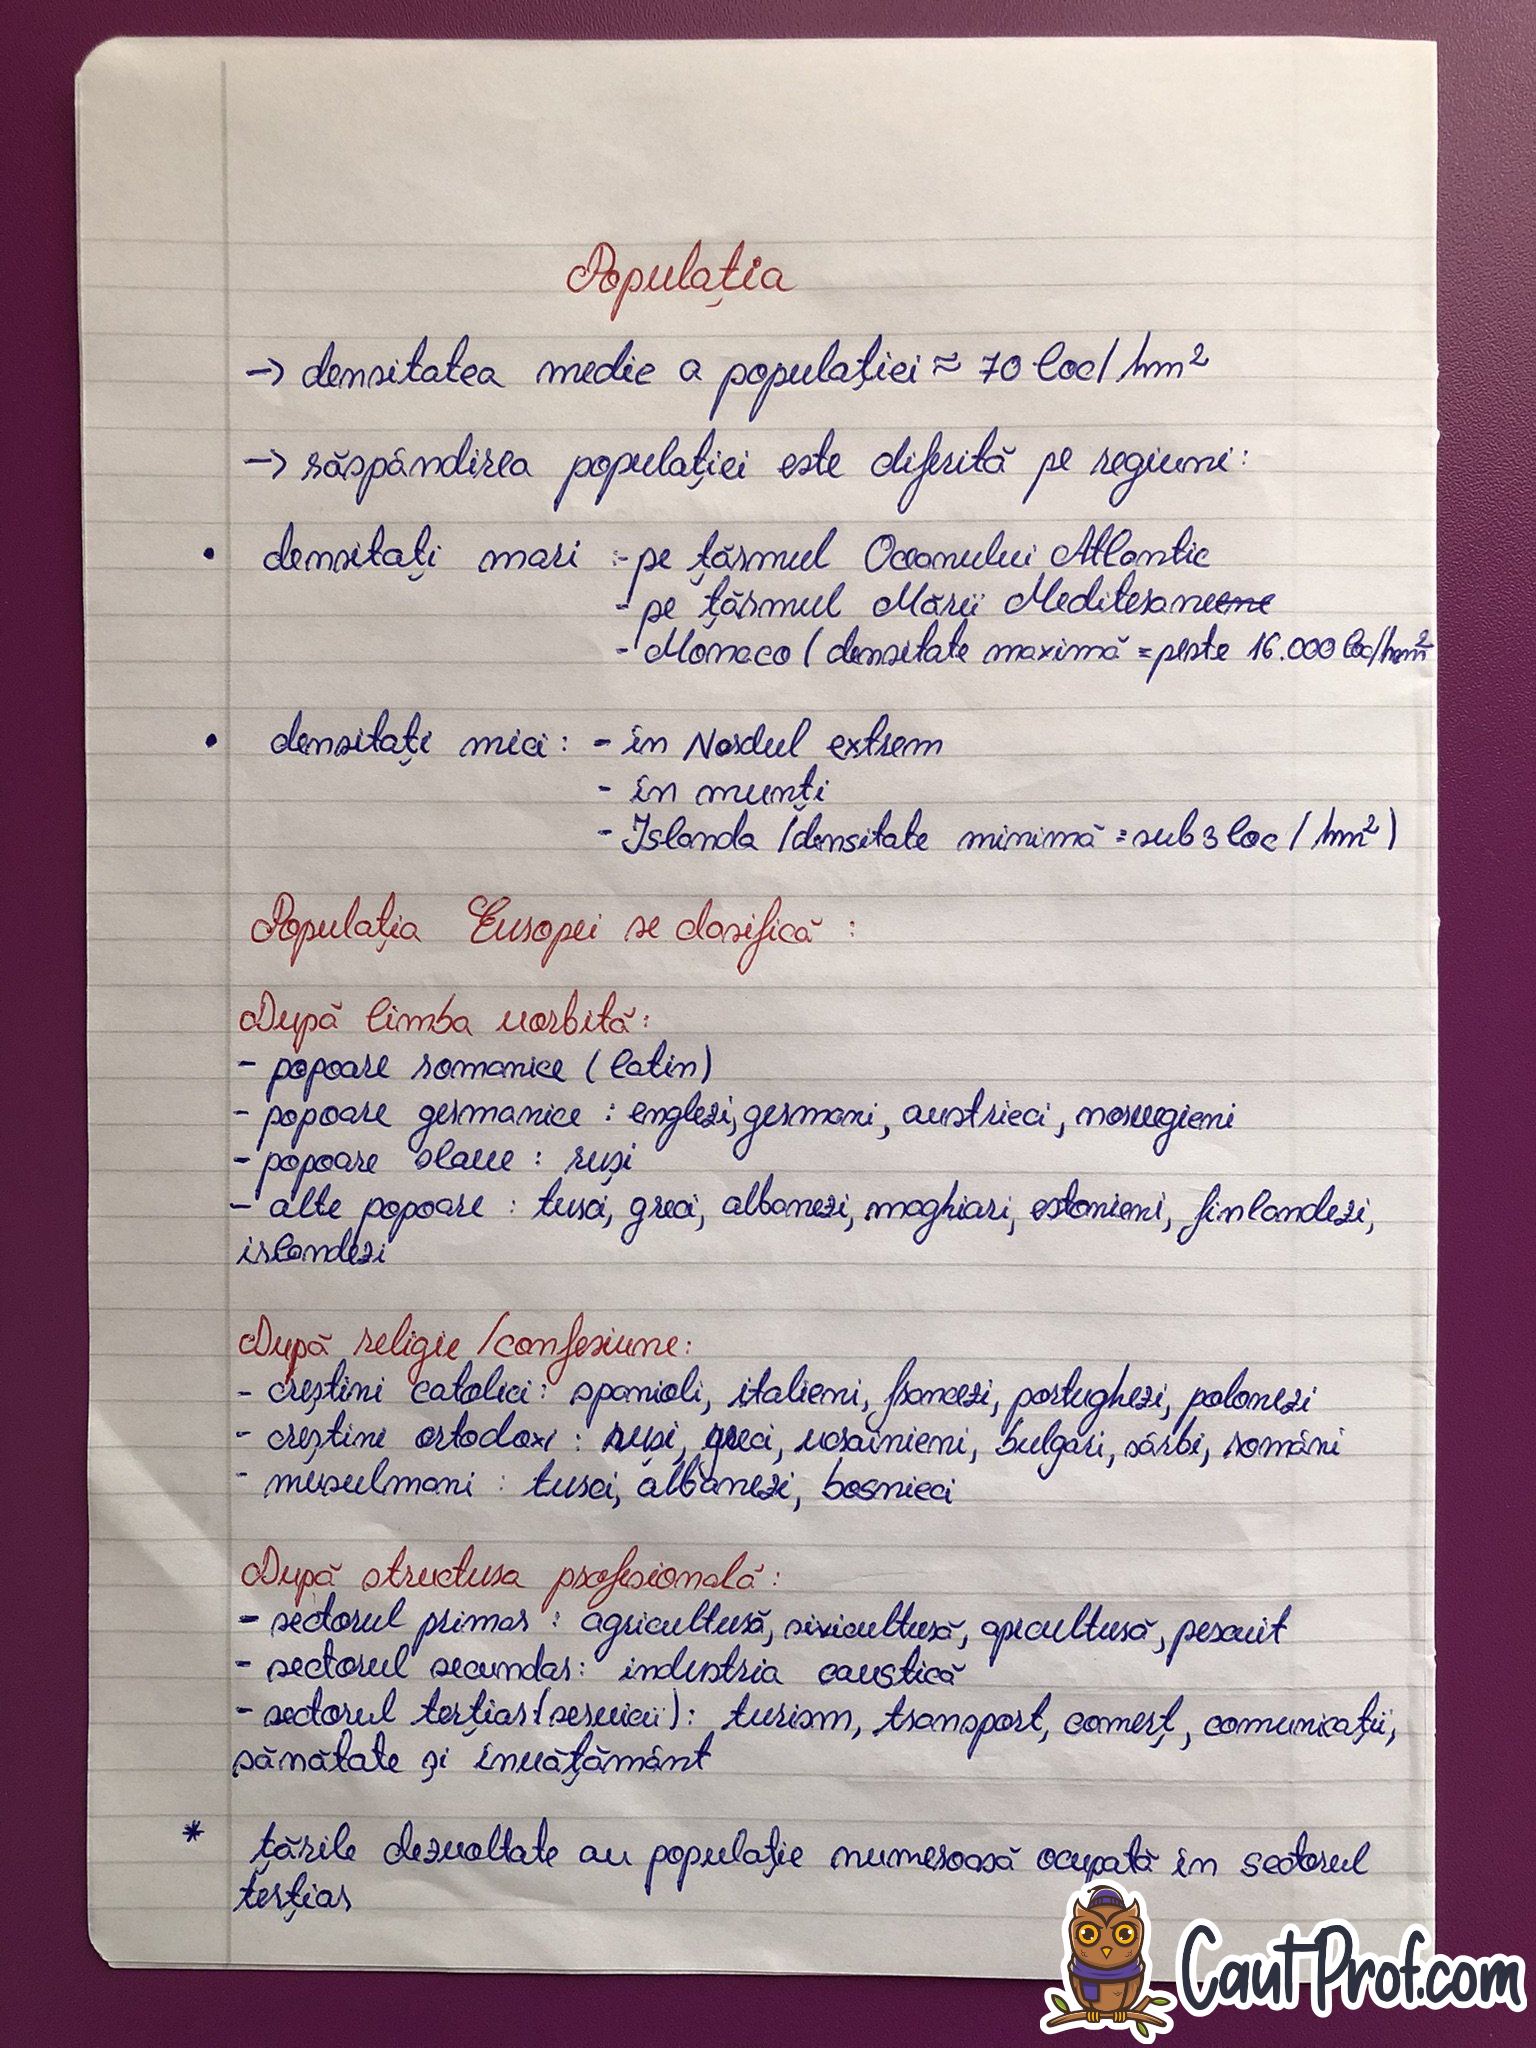 Populația
-> densitatea medie a populației ≈ 70 loc/km²
-> răspândirea populației este diferită pe regiuni:
• densitați mari :- pe țărmul Oceanului Atlantic
- pe țărmul Mării Mediterane
- Monaco (densitate maximă = peste 16.000 loc/km²
• densitați mici : - în Nordul extrem
- în munți
- Islanda (densitate minimă = sub 3 loc/km²)
Populația Europei se clasifică :
După limba vorbită:
- popoare romanice (latin)
- popoare germanice : englezi, germani, austrieci, norvegieni
- popoare slave : ruși
- alte popoare : turci, greci, albanezi, maghiari, estonieni, finlandezi,
islandezi
După religie /confesiune:
- creștini catolici : spanioli, italieni, francezi, portughezi, polonezi
- creștini ortodoxi : ruși, greci, ucrainieni, bulgari, sârbi, români
- musulmani : turci, albanezi, bosnieci
După structura profesională :
- sectorul primar : agricultură, sivicultură, apicultură, pescuit
- sectorul secundar: industria caustică
- sectorul terțiar (servicii) : turism, transport, comerț, comunicații,
sănătate și învățământ
* țările dezvoltate au populație numeroasă ocupată în sectorul
terțiar
CautProf.com